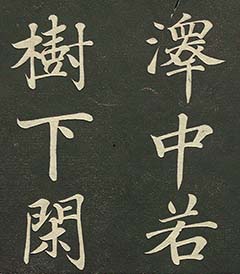 澤中若
樹下閑